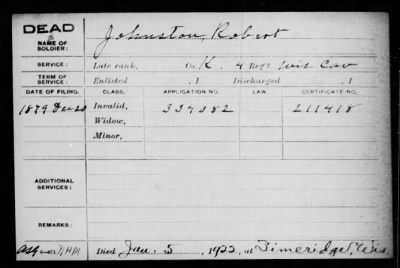 DEAD
NAME OF SOLDIER: Johnston, Robert
SERVICE: Late rank, Co. K. 4 Reg't Wis Cav
TERM OF SERVICE: Enlisted , 1 Discharged , 1
DATE OF FILING. CLASS. APPLICATION NO. LAW. CERTIFICATE NO.
1879 Dec 20 Invalid, 334382 211418
Widow,
Minor,
ADDITIONAL SERVICES:
REMARKS:
Died Jan. 5, 1922, at Limeridge, Wis